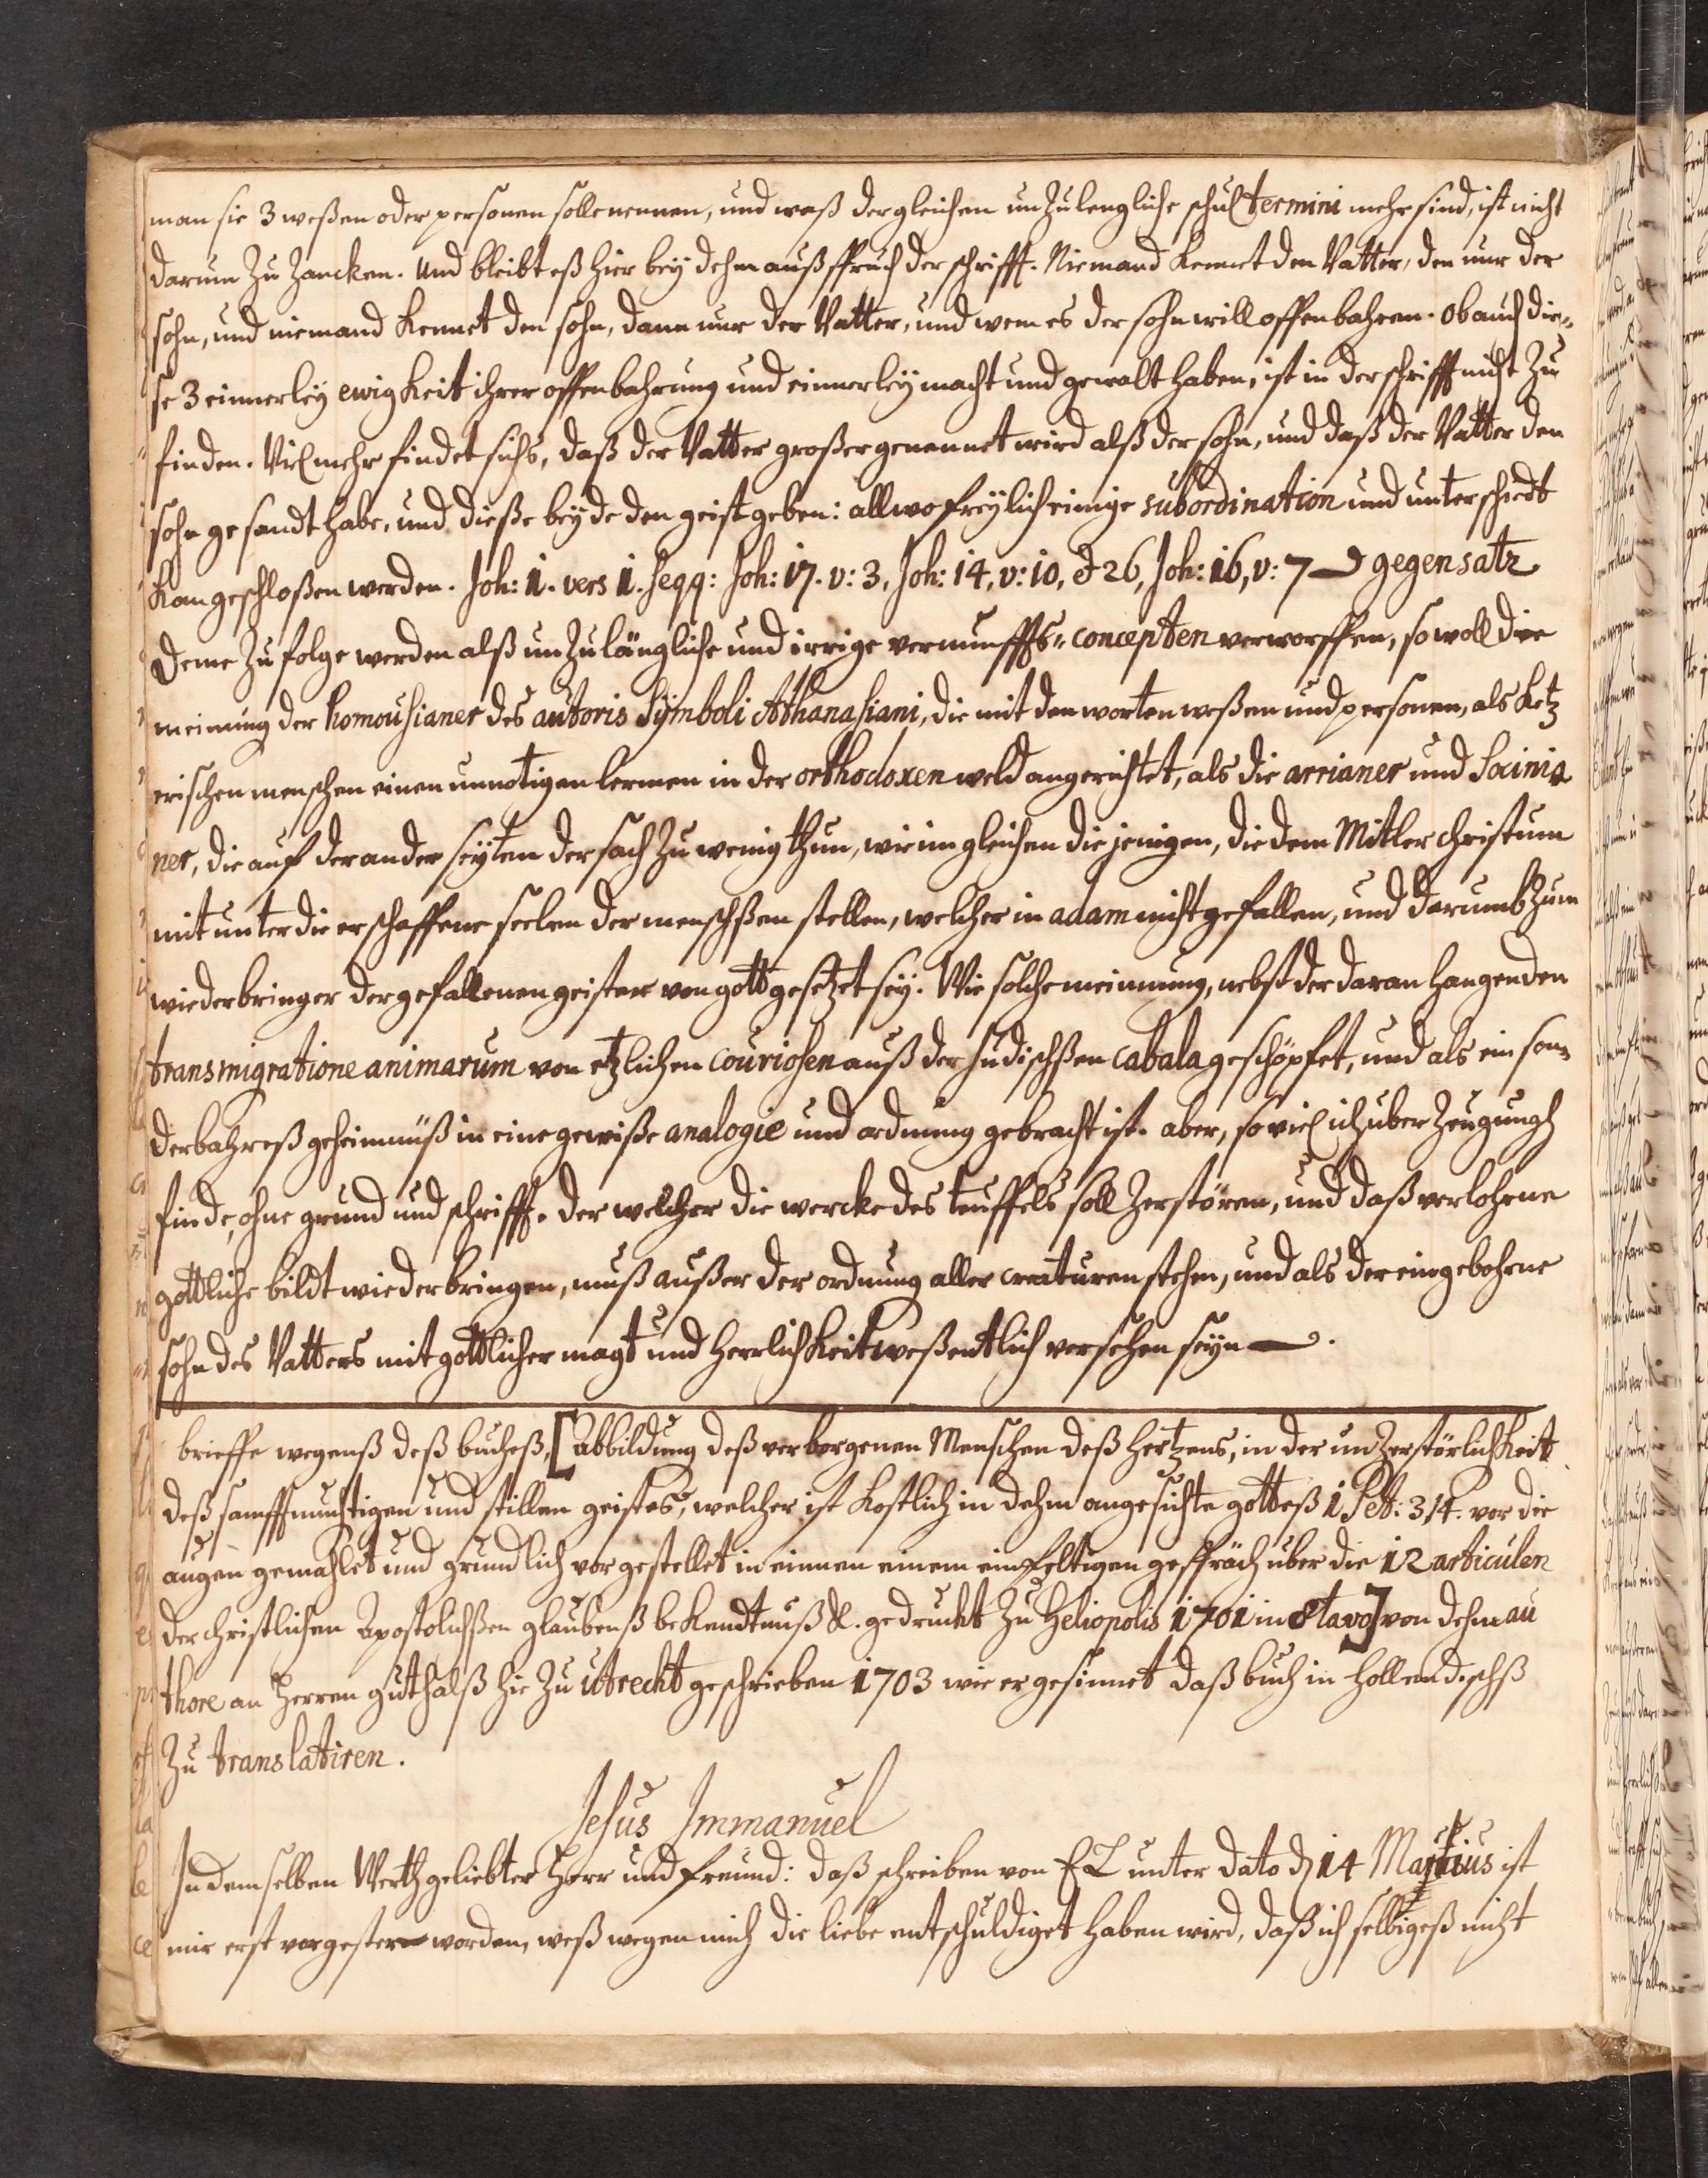 man sie 3 weßen oder personen solle nennen, und waß dergleichen unzulengliche schul termini mehr sind, ist nicht
darum zu zancken. Und bleibt eß hier bey dehm außspruch der schrifft. Niemand kennet den Vatter, den nur der
sohn, und niemand kennet den sohn, dann nur der Vatter, und wem es der sohn will offenbahren. ob auch die-
se 3 einnerley ewigkeit ihrer offenbahrung und einnerley macht und gewalt haben, ist in der schrifft nicht zu
finden. Vielmehr findet sichs, daß der Vatter großer genennet wird alß der sohn, und daß der Vatter den
sohn gesandt habe, und dieße beyde den geist geben: allwo freylich einige subordination und unterschiedt
kan geschloßen werden. Joh: 1. vers 1. seqq: Joh: 17. v: 3, Joh: 14, v: 10, & 26, Joh: 16, v: 7 gegensatz
Deme zu folge werden alß unzulängliche und irrige vernunffts-concepten verworffen, so woll die
meinung der homousianer des autoris Symboli Athanasiani, die mit den worten weßen und personen, als ketz
erischen menschen einen unnotigen lermen in der orthodoxen weld angerichtet, als die arrianer und Socinia
ner, die auf der ander seyten der sach zu wenig thun, wie im gleichen die jenigen, die dem Mitler Christum
mit unter die erschaffene seelen der menschßen stellen, welcher in adam nicht gefallen, und darumb zum
wiederbringer der gefallenen geister von gott gesetzet sey. Wie solche meinnung, nebst der daran hangenden
transmigratione animarum von etzlichen couriosen auß der Judischßen Cabala geschöpfet, und als ein son-
derbahreß geheimnüß in eine gewiße analogie und ordnung gebracht ist. aber, so viel ich uberzeugungh
finde, ohne grund und schrifft. der welcher die wercke des teuffels soll zerstören, und daß verlohrne
gottliche bildt wiederbringen, muß außer der ordnung aller creaturen stehen, und als der eingebohrne
sohn des Vatters mit gottlicher magt und herrlichkeit weßentlich versehen seyn.
brieffe wegenß deß bucheß, [abbildung deß verborgenen Menschen deß hertzens, in der unzerstörlichkeit
deß sanfftmuhtigen und stillen geistes, welcher ist kostlich in dehm angesichte gotteß 1 Pet: 3, 4. vor die
augen gemahlet und grundlich vorgestellet in einnen einem einfeltigen gespräch uber die 12 articulen
der christlichen Apostolischßen glaubenß bekendtnuß &. gedruckt zu Heliopolis 1701 in 8tavo] von dehm au
thore an Herren guthalß hie zu utrecht geschrieben 1703 wie er gesinnet daß buch in hollendischß
zu translatiren.
Jesus Immanuel
In demselben Werthgeliebter Herr und freund: daß schreiben von E L unter dato d 14 Martius ist
mir erst vorgestern worden, weßwegen mich die liebe entschuldiget haben wird, daß ich selbigeß nicht